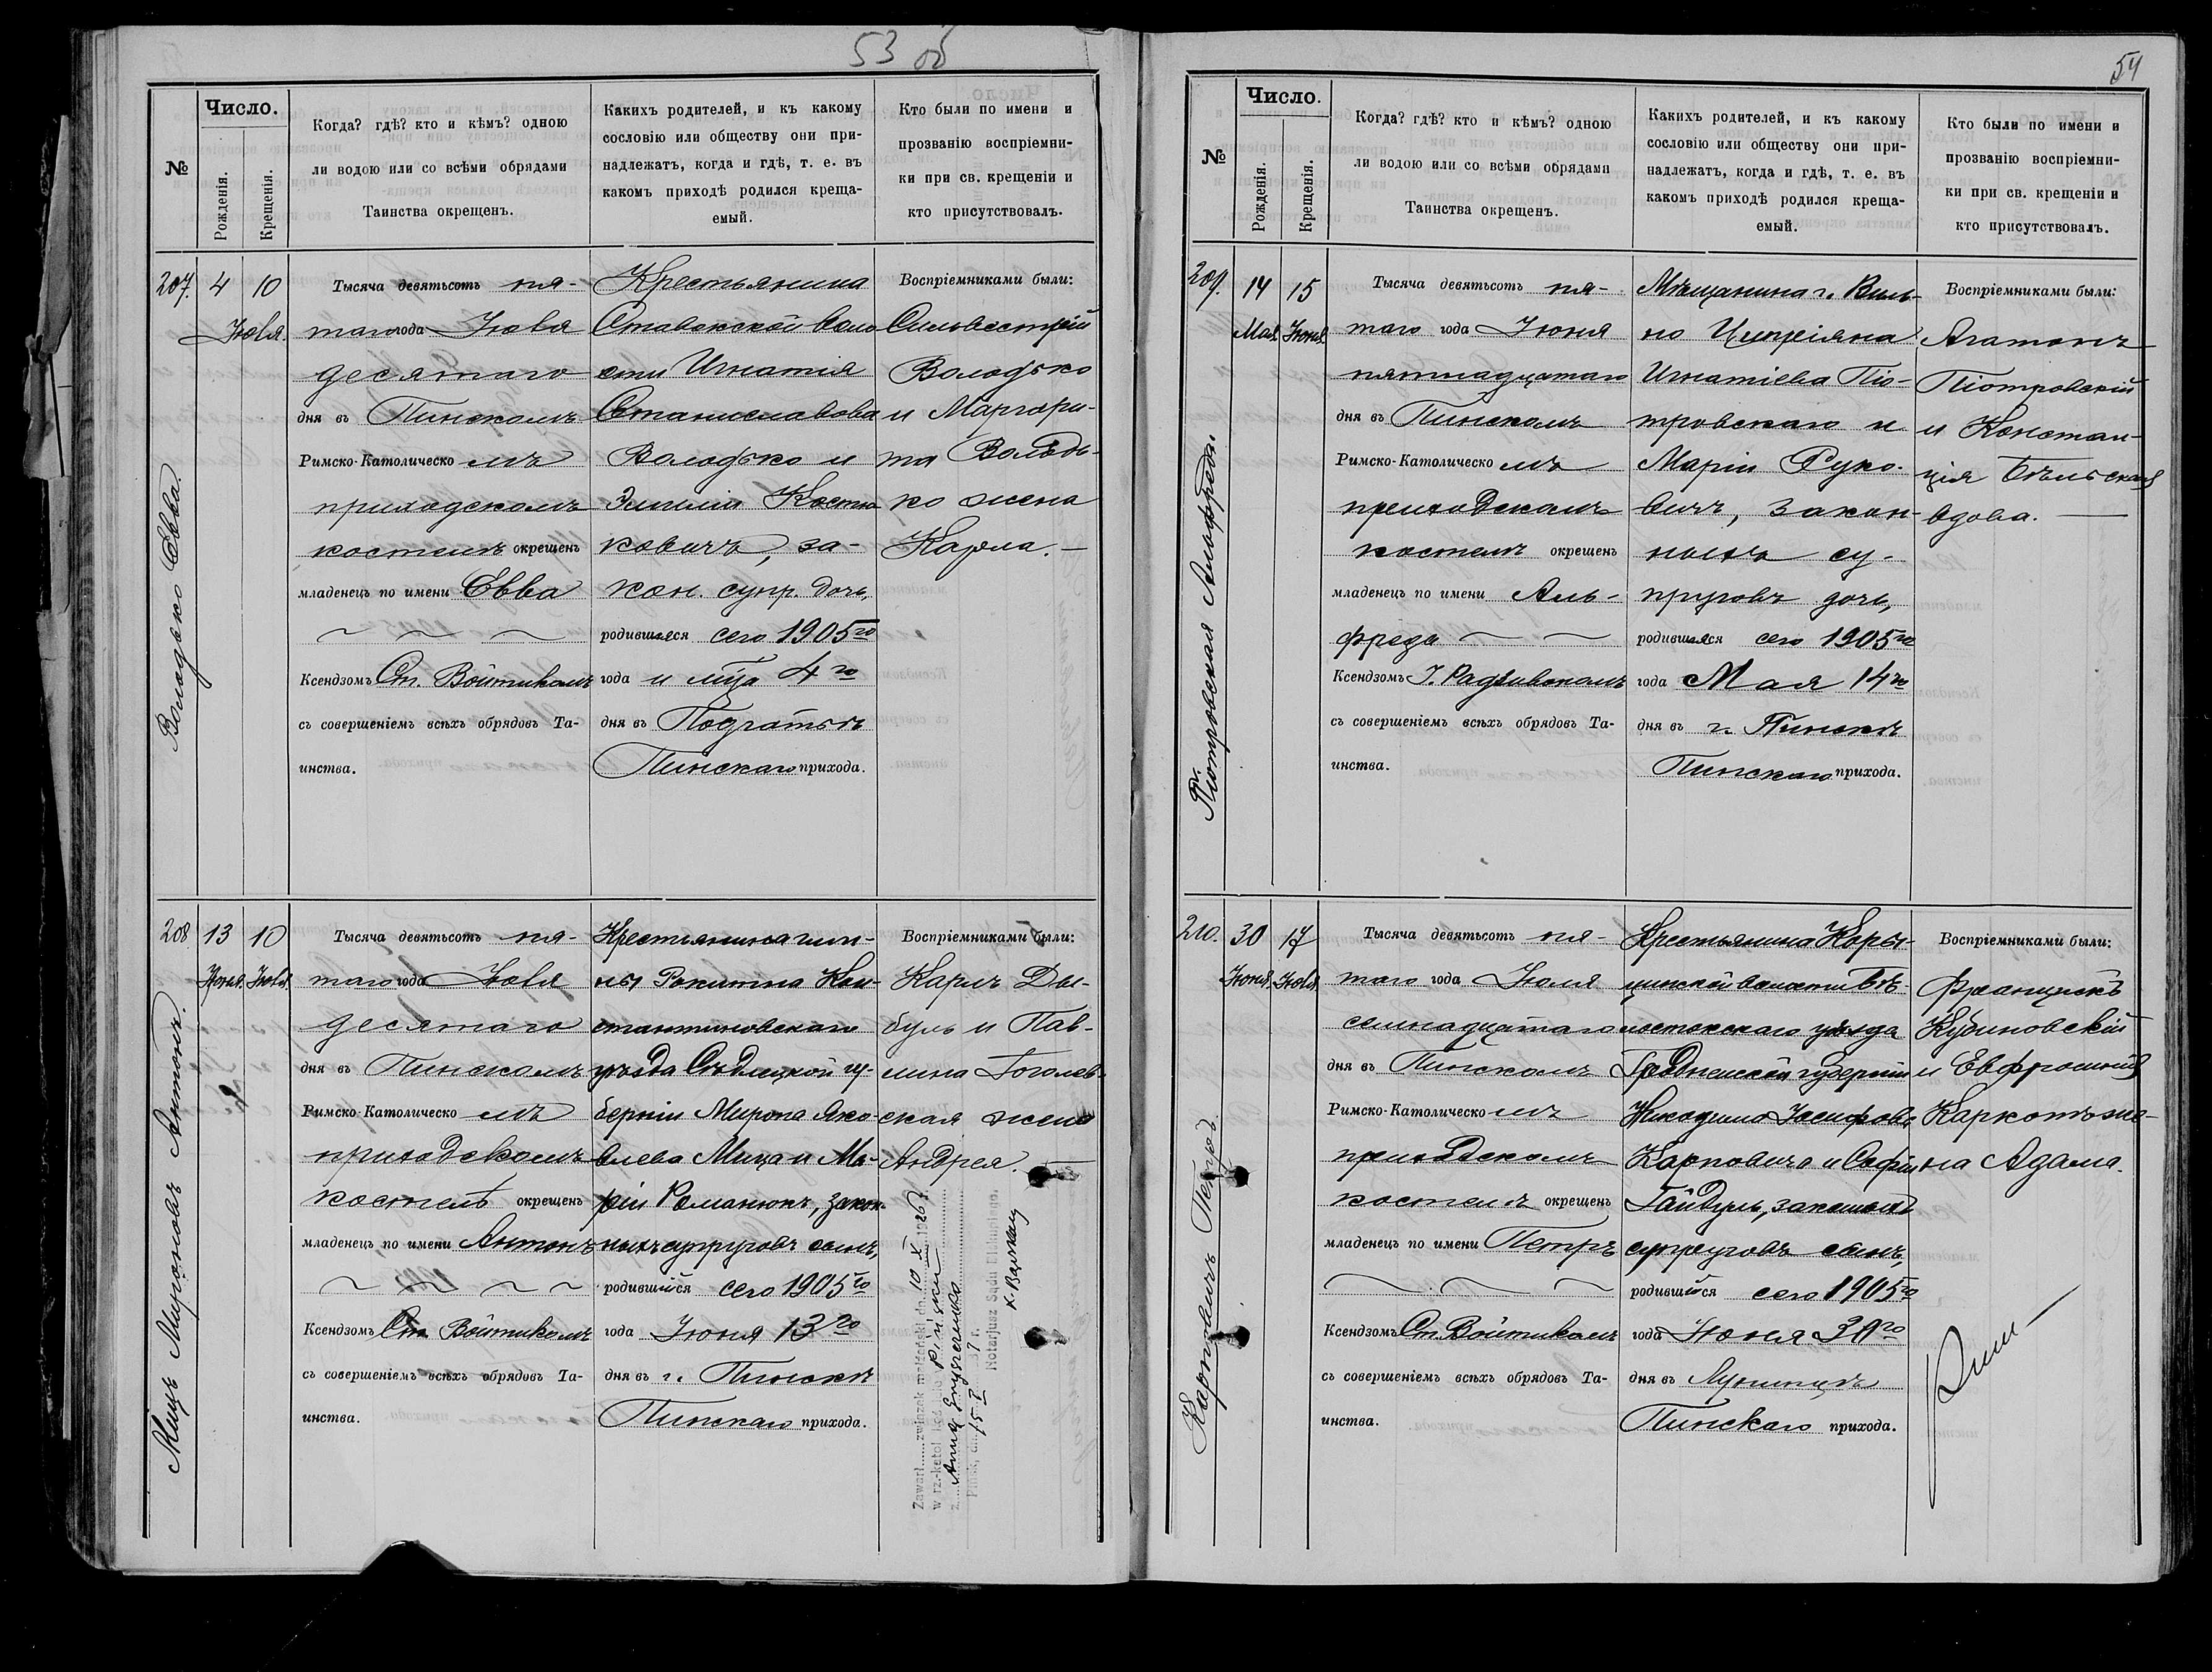 53 об
№
Число.
Рожденія.
Крещенія.
Когда? гдѣ? кто и кѣмъ? одною
ли водою или со всѣми обрядами
Таинства окрещенъ.
Какихъ родителей, и къ какому
сословію или обществу они при-
надлежатъ, когда и гдѣ, т. е. въ
какомъ приходѣ родился креща-
емый.
Кто были по имени и
прозванію воспріемни-
ки при св. крещеніи и
кто присутствовалъ.
207.
4
10
Іюля.
Володько Евва.
Тысяча девятьсотъ пя-
таго года Іюля
десятаго
дня въ Пинскомъ
Римско-Католическомъ
приходскомъ
костелѣ окрещенъ
младенецъ по имени Евва
Ксендзомъ Ст. Войтикомъ
съ совершеніемъ всѣхъ обрядовъ Та-
инства.
Крестьянина
Ставокской воло
сти Игнатія
Станиславова
Володько и
Эмиліи Костю
ковичъ, за-
кон. супр. дочь,
родившаяся сего 1905го
года и м-ца 4го
дня въ
Пинскаго прихода.
Воспріемниками были:
Сильвестрій
Володько
и Маргари-
та Володь-
ко жена
Карла.
208.
13
10
Іюня.
Іюля.
Мицъ Мироновъ Антонъ.
Тысяча девятьсотъ пя-
таго года Іюля
десятаго
дня въ Пинскомъ
Римско-Католическомъ
приходскомъ
костелѣ окрещенъ
младенецъ по имени Антонъ
Ксендзомъ Ст. Войтикомъ
съ совершеніемъ всѣхъ обрядовъ Та-
инства.
Крестьянина гми-
ны Рокитна Кон-
стантиновскаго
уѣзда Сѣдлецкой гу-
берніи Мирона Яко-
влева Мица и Ма-
ріи Романюкъ, закон-
ныхъ супруговъ сынъ,
родившійся сего 1905го
года Іюня 13го
дня въ г. Пинскѣ
Пинскаго прихода.
Воспріемниками были:
Карлъ Ды-
буль и Пав-
лина Гоголев-
ская жена
Андрея.
Zawarł związek małżeński dn. 10 X 1926 r.
w rz.-katol. Pińsku
z Anną
Pińsk, dn. 15 I 7 r.
Notarjusz Sądu Biskupiego.
54
№
Число.
Рожденія.
Крещенія.
Когда? гдѣ? кто и кѣмъ? одною
ли водою или со всѣми обрядами
Таинства окрещенъ.
Какихъ родителей, и къ какому
сословію или обществу они при-
надлежатъ, когда и гдѣ, т. е. въ
какомъ приходѣ родился креща-
емый.
Кто были по имени и
прозванію воспріемни-
ки при св. крещеніи и
кто присутствовалъ.
209.
14
15
Мая
Іюня
Піотровская Альфреда.
Тысяча девятьсотъ пя-
таго года Іюня
пятнадцатаго
дня въ Пинскомъ
Римско-Католическомъ
приходскомъ
костелѣ окрещенъ
младенецъ по имени Аль-
фреда
Ксендзомъ І. Радзивскомъ
съ совершеніемъ всѣхъ обрядовъ Та-
инства.
Мѣщанина г. Виль-
но Ципріяна
Игнатіева Піо-
тровскаго и
Маріи Руко-
вичъ, закон-
ныхъ су-
пруговъ дочь,
родившаяся сего 1905го
года Мая 14го
дня въ г. Пинскѣ
Пинскаго прихода.
Воспріемниками были:
Агатонъ
Піотровскій
и Констан-
ція Бѣльская
вдова.
210.
30
17
Іюня.
Іюля
Карповичъ Петръ.
Тысяча девятьсотъ пя-
таго года Іюля
семнадцатаго
дня въ Пинскомъ
Римско-Католическомъ
приходскомъ
костелѣ окрещенъ
младенецъ по имени Петръ
Ксендзомъ Ст. Войтикомъ
съ совершеніемъ всѣхъ обрядовъ Та-
инства.
Крестьянина Коры-
цинской волости Бѣ-
лостокскаго уѣзда
Гродненской губерніи
Никодима Іосифова
Карповича и Софіи
Гайдуль, законныхъ
супруговъ сынъ,
родившійся сего 1905го
года Іюня 30го
дня въ Лунинцѣ
Пинскаго прихода.
Воспріемниками были:
Францискъ
Кубиновскій
и Евфрошинія
Каркотъ же-
на Адама.